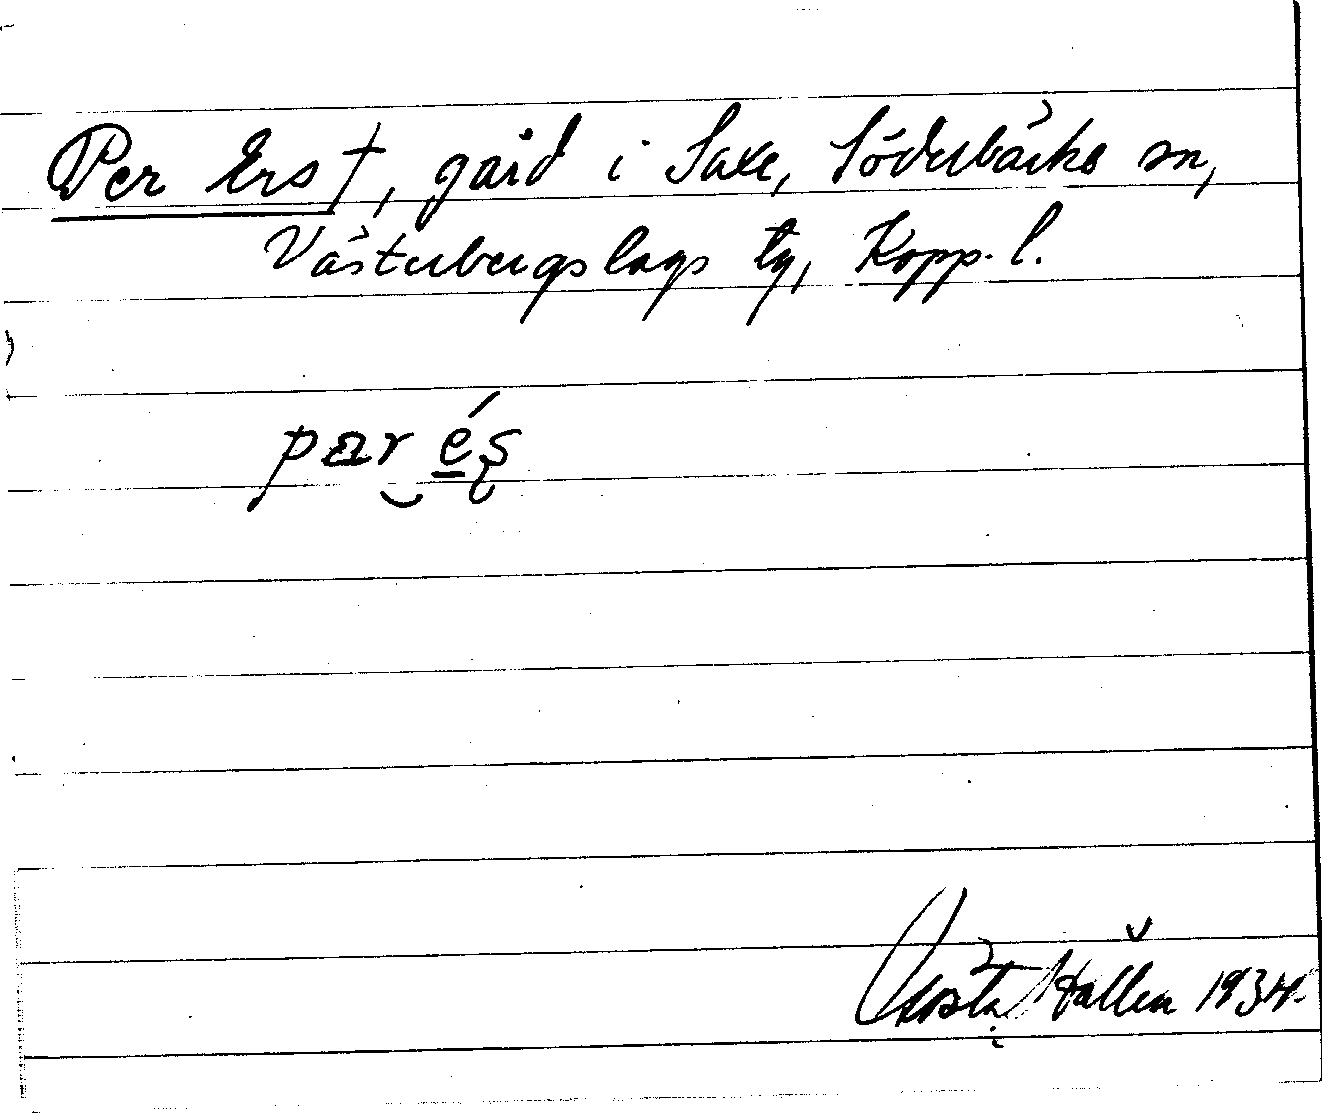 Per Ers †, gård i Saxe, Söderbärke sn,
Västerbergslags tg, Kopp. l.
par és
Gösta Hallén 1934.